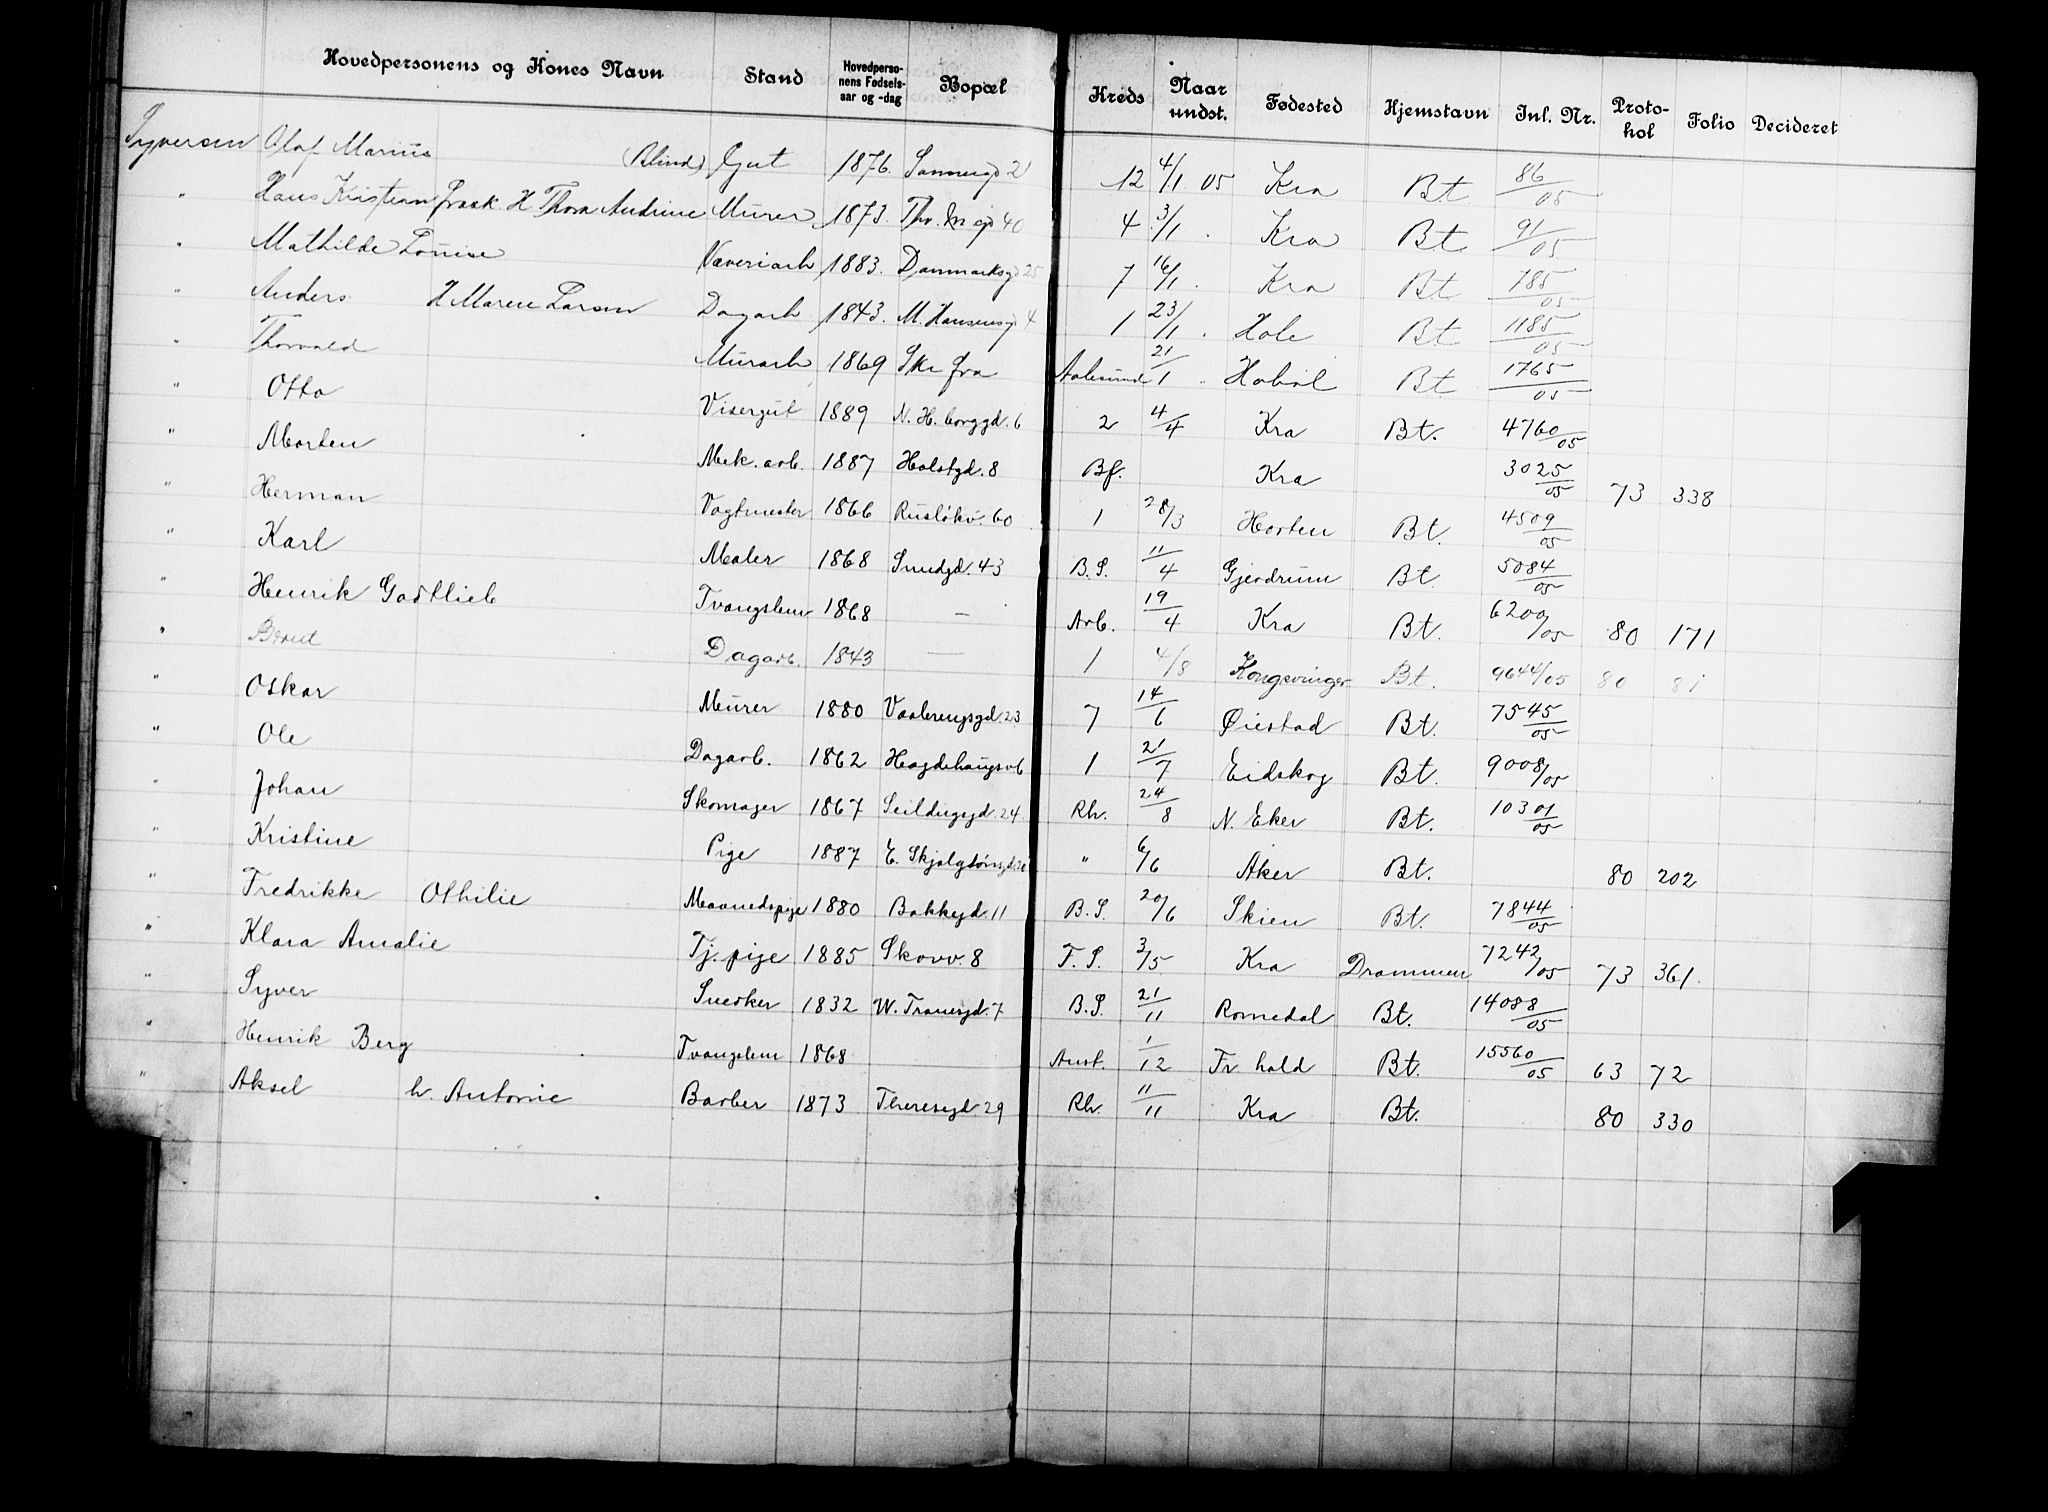 Hovedpersonens og Kones Navn Stand Hovedpersonens Fødselsaar og -dag Bopæl Kreds Naar undst. Fødested Hjemstavn Inl. Nr. Protokol Folio Decideret
Syversen Olaf Marius (Blind) Gut 1876. Sannergd 21 12 4/1 05 Kra Bt 86/05
" Hans Kristian frask. H Thora Andrine Murer 1873. Thv. M gd 40 4 3/1 . Kra Bt 91/05
" Mathilde Louise Væveriarb 1883. Danmarksgd 25 7 16/1 . Kra Bt 785/05
" Anders H Maren Larsen Dagarb 1843. M. Hansensgd 4 1 23/1 . Hole Bt 1185/05
" Thorvald Murarb 1869 Skr fra Aalesund 21/1 . Hobøl Bt 1765/05
" Otto Visergut 1889 N. H. borggd. 6 2 4/4 Kra Bt. 4760/05
" Morten Mek. arb. 1887 Holstgd. 8 Bf. Kra 3025/05 73 338
" Herman Vagtmester 1866 Rusløkv. 60 1 28/3 Horten Bt. 4509/05
" Karl Maler 1868 Smedgd. 43 B.S. 11/4 Gjerdrum Bt 5084/05
" Henrik Gottlieb Tvangslem 1868 — Arb. 19/4 Kra Bt. 6200/05 80 171
" Bernt Dagarb. 1843 — 1 4/8 Kongsvinger Bt. 9644/05 80 81
" Oskar Murer 1880 Vaalerengsgd. 23 7 14/6 Øiestad Bt. 7545/05
" Ole Dagarb. 1862 Hegdehaugsv 6 1 21/7 Eidskog Bt. 9008/05
" Johan Skomager 1867 Seildugsgd. 24 Rh. 24/8 N. Eker Bt. 10301/05
" Kristine Pige 1887 E. Skjalgsønsgd 20 " 6/6 Aker Bt. 80 202
" Fredrikke Othilie Maanedspige 1880 Bakkegd. 11 B.S. 20/6 Skien Bt. 7844/05
" Klara Amalie Tj. pige 1885 Skovv. 8 F.S. 3/5 Kra Drammen 7242/05 73 361.
" Syver Snedker 1832 W. Tranesgd. 7 B.S. 21/11 Romedal Bt. 14088/05
" Henrik Berg Tvangslem 1868 Anst. 1/12 Fr hald Bt. 15560/05 63 72
" Aksel h. Antonie Barber 1873 Theresegd 29 Rh. 11/11 Kra Bt. 80 330